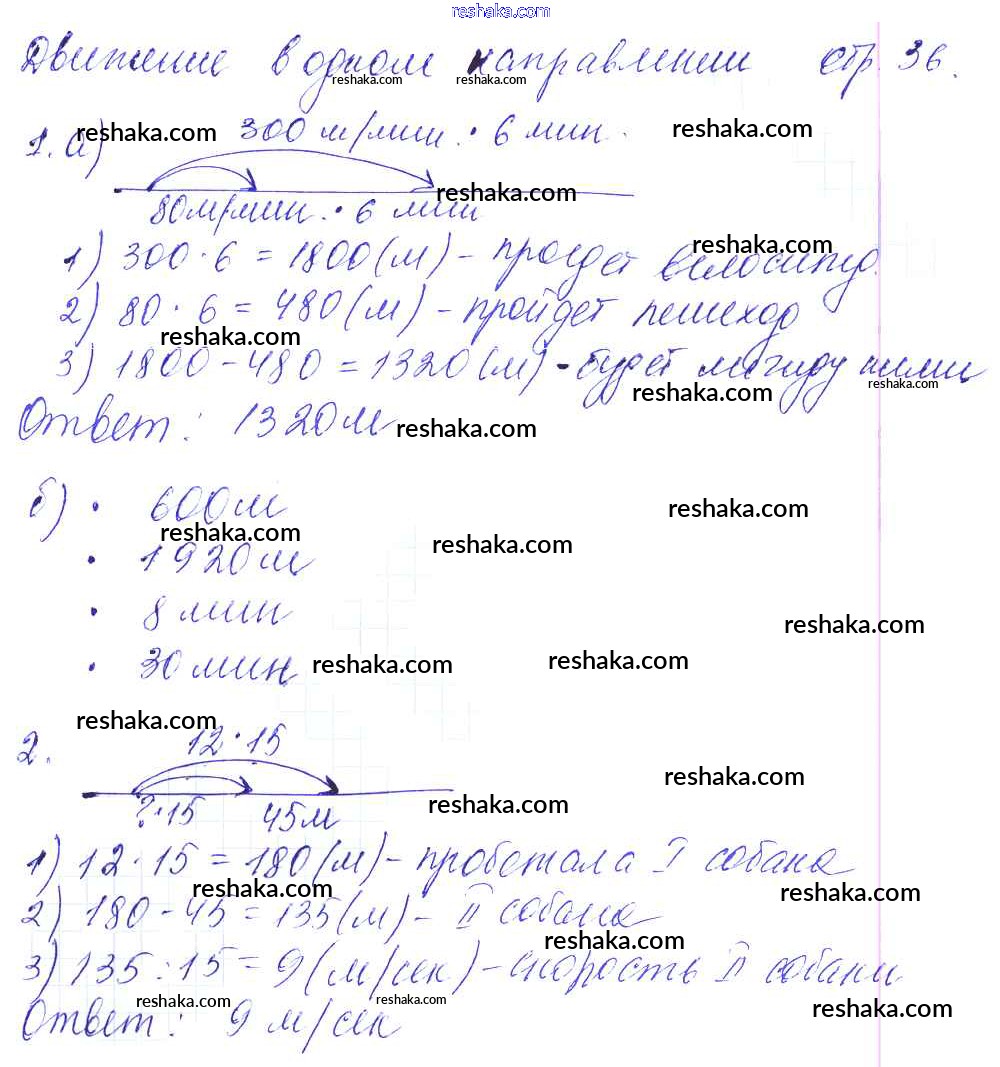 reshaka.com
Движение в одном направлении стр. 36.
reshaka.com reshaka.com
1. а) reshaka.com 300 м/мин. • 6 мин. reshaka.com
reshaka.com
80м/мин. • 6 мин
reshaka.com
1) 300 · 6 = 1800 (м) – проедет велосипед.
2) 80 · 6 = 480 (м) – пройдет пешеход
reshaka.com
3) 1800 – 480 = 1320 (м) – будет между ними
reshaka.com reshaka.com
Ответ: 1320 м reshaka.com
б) • 600 м reshaka.com
reshaka.com reshaka.com
• 1920 м
• 8 мин
reshaka.com
• 30 мин reshaka.com reshaka.com
reshaka.com
2. 12 · 15
reshaka.com
? · 15 45 м reshaka.com
1) 12 · 15 = 180 (м) – пробежала I собака
reshaka.com reshaka.com
2) 180 – 45 = 135 (м) – II собака
reshaka.com
3) 135 : 15 = 9 (м/сек) – скорость II собаки
reshaka.com reshaka.com reshaka.com
Ответ: 9 м/сек